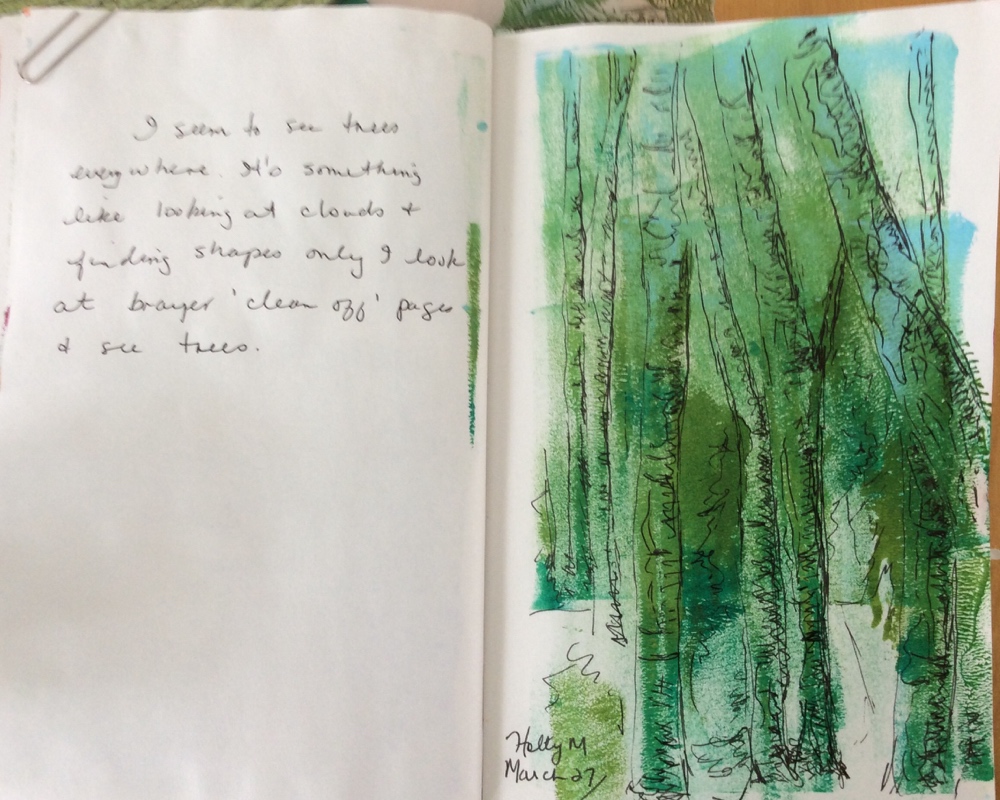 I seem to see trees
everywhere. It's something
like looking at clouds +
finding shapes only I look
at brayer 'clean off' pages
& see trees.
Holly M
March 27